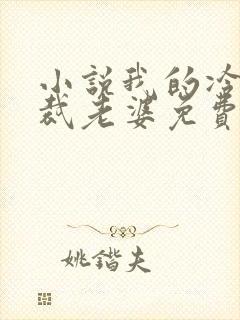 小説我的冷
裁老婆免費
姚鍇夫